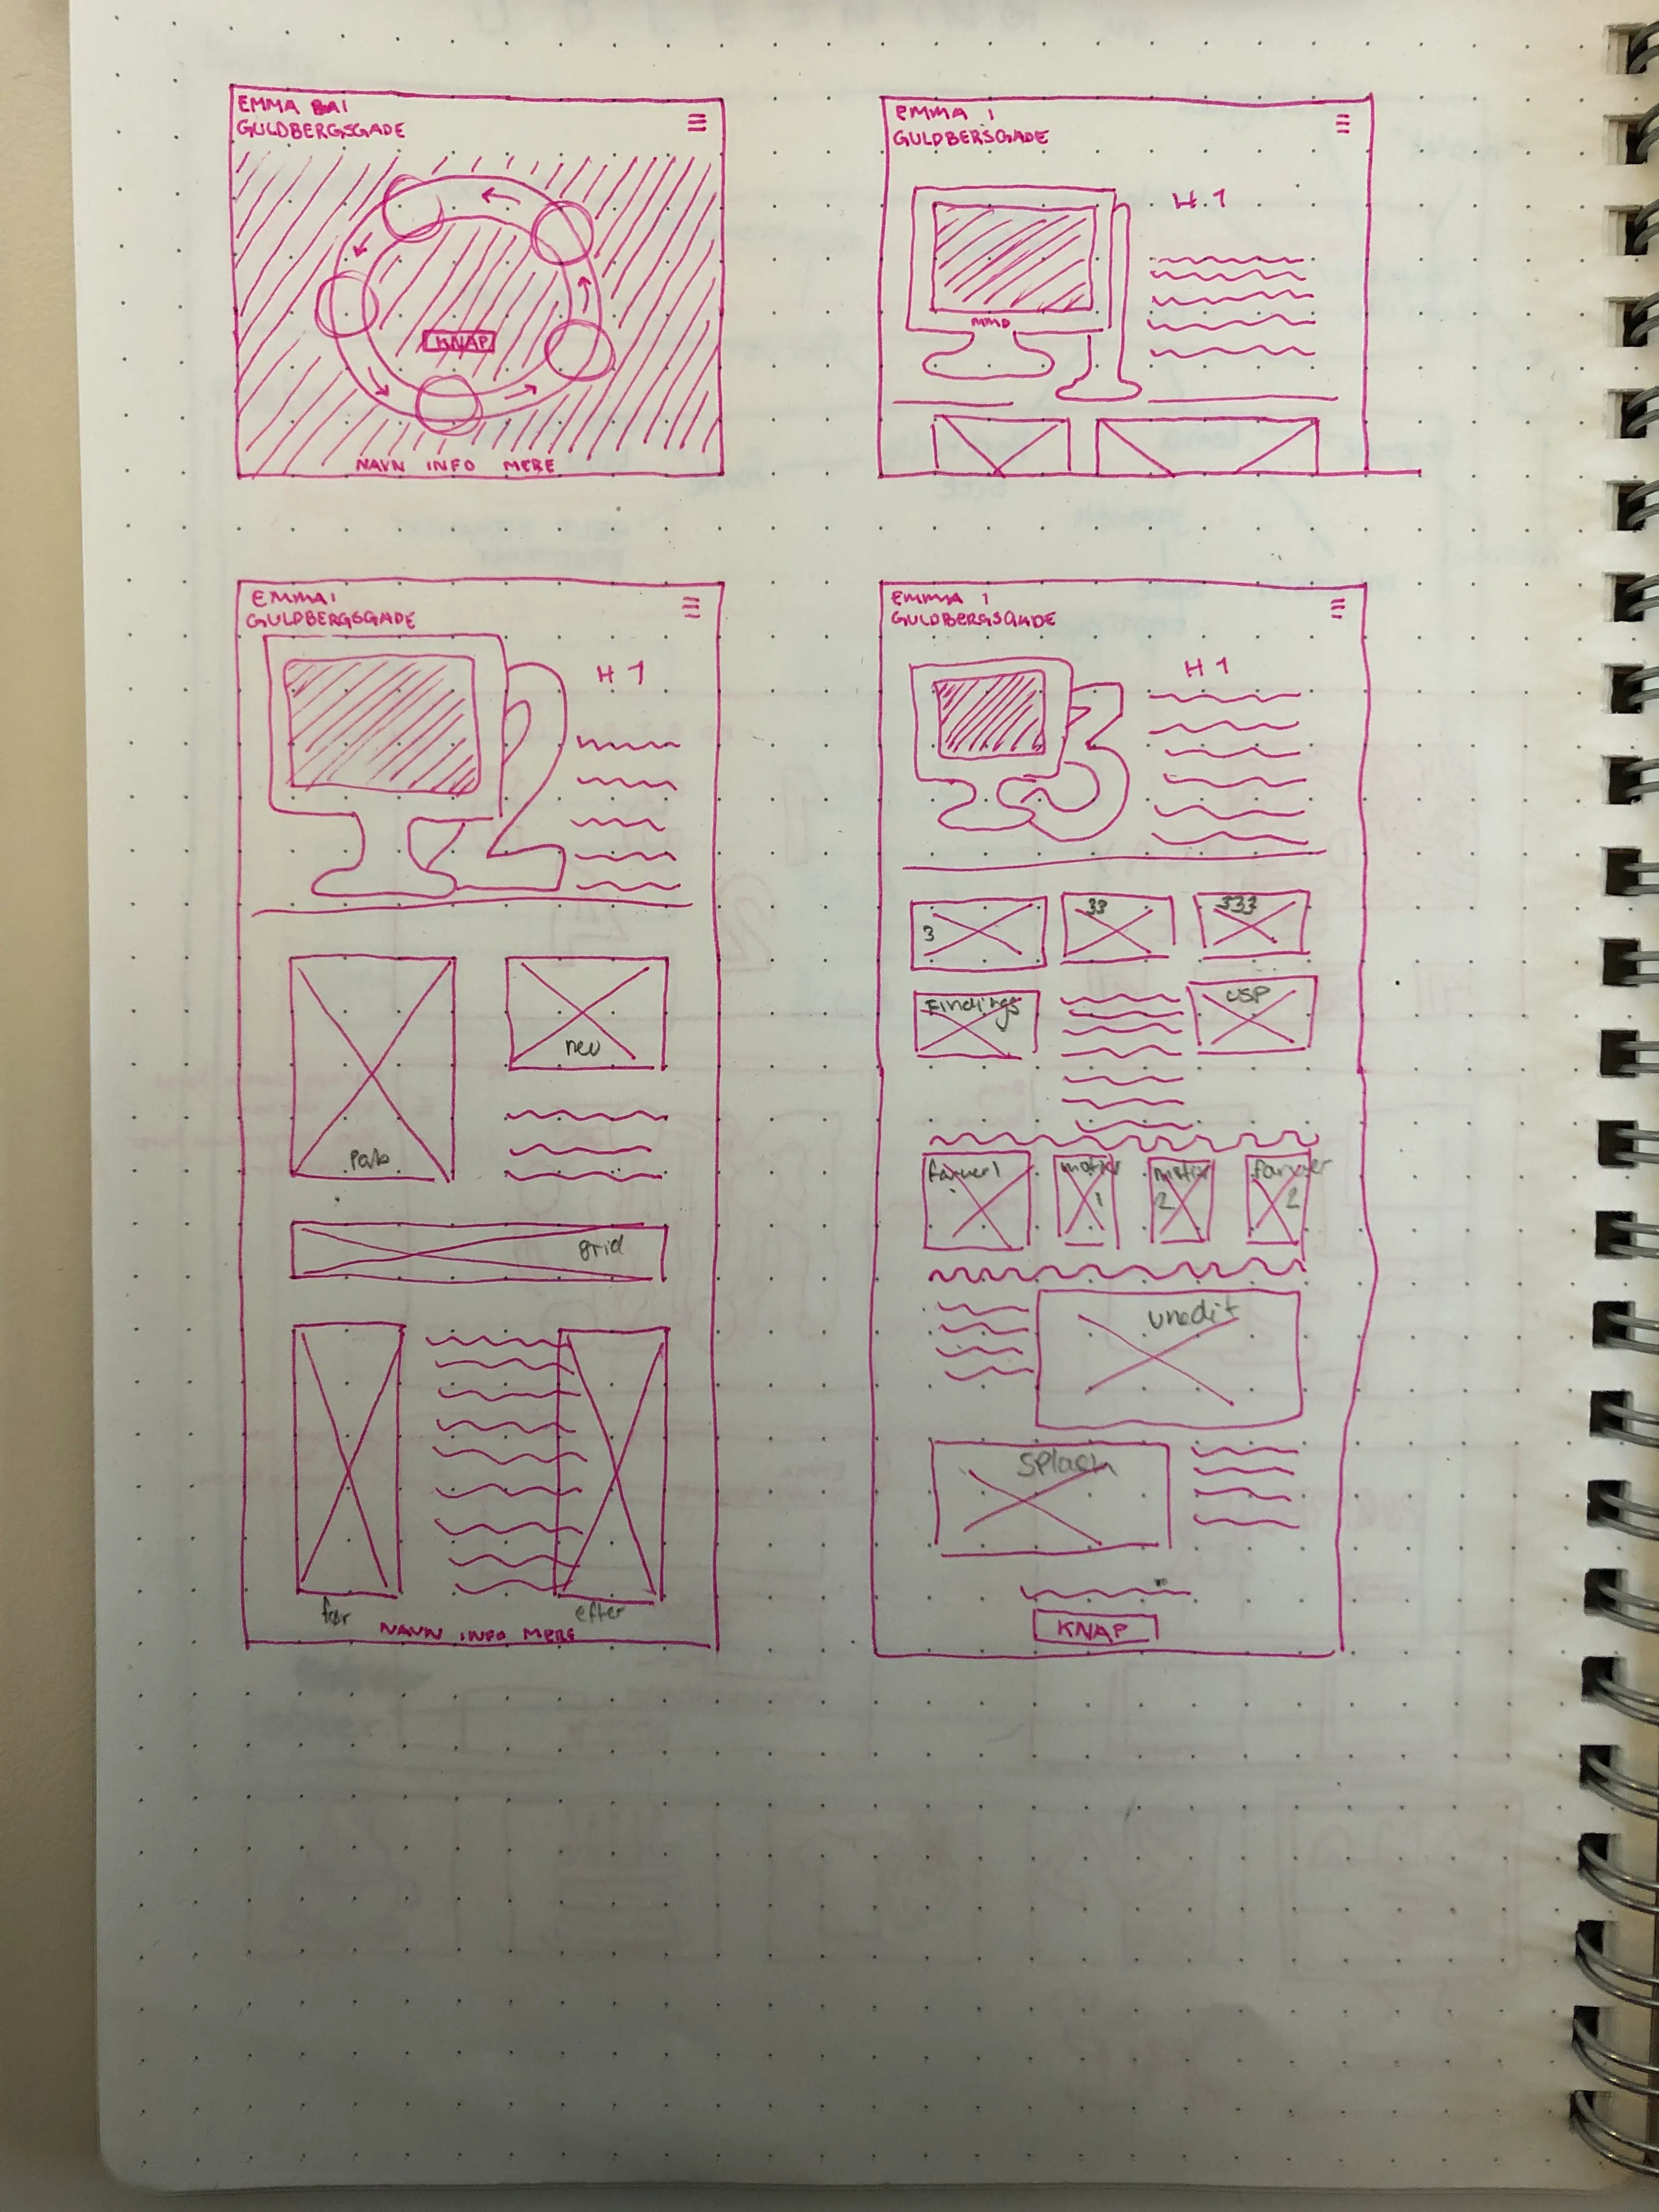 EMMA BAI
GULDBERGSGADE
KNAP
NAVN INFO MERE
EMMA I
GULDBERSGADE
H1
MMD
EMMA I
GULDBERGSGADE
H1
neu
grid
før
efter
NAVN INFO MERE
EMMA I
GULDBERGSGADE
H1
3
33
333
Findings
USP
farver 1
1
2
farver
2
unedit
Splash
KNAP